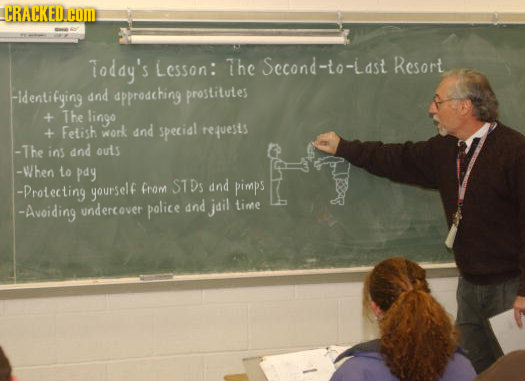 CRACKED.COM
Today's Lesson: The Second-to-Last Resort
-Identifying and approaching prostitutes
+ The lingo
+ Fetish work and special requests
-The ins and outs
-When to pay
-Protecting yourself from STDs and pimps
-Avoiding undercover police and jail time